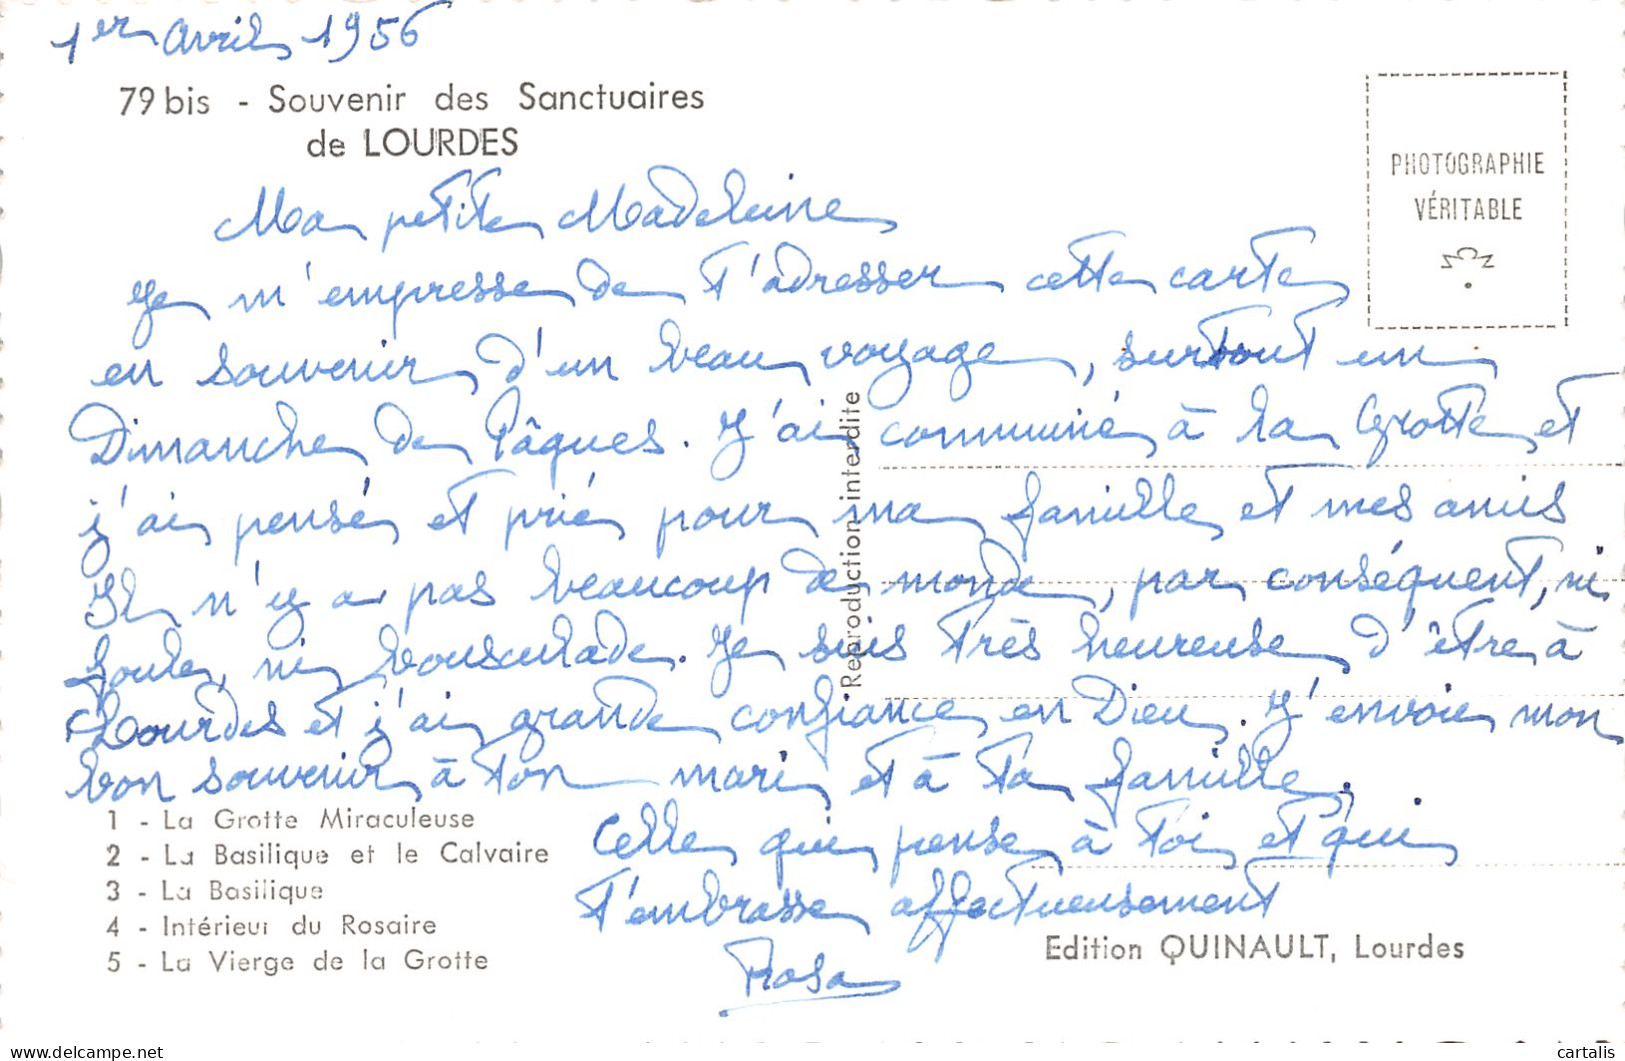 1er Avril 1956
79 bis - Souvenir des Sanctuaires
de LOURDES
PHOTOGRAPHIE
VÉRITABLE
Ma petite Madeleine
Je m'empresse de t'adresser cette carte
en souvenir d'un beau voyage, surtout un
Dimanche de Pâques. J'ai communié à la Grotte et
j'ai pensé et prié pour ma famille et mes amis
Il n'y a pas beaucoup de monde, par conséquent, ni
foule, ni bousculade. Je suis très heureuse d'être à
Lourdes et j'ai grande confiance en Dieu. J'envoie mon
bon souvenir à ton mari et à ta famille.
Celle qui pense à toi et qui
t'embrasse affectueusement
Rosa
Reproduction interdite
1 - La Grotte Miraculeuse
2 - La Basilique et le Calvaire
3 - La Basilique
4 - Intérieur du Rosaire
5 - La Vierge de la Grotte
Edition QUINAULT, Lourdes
delcampe.net
cartalis